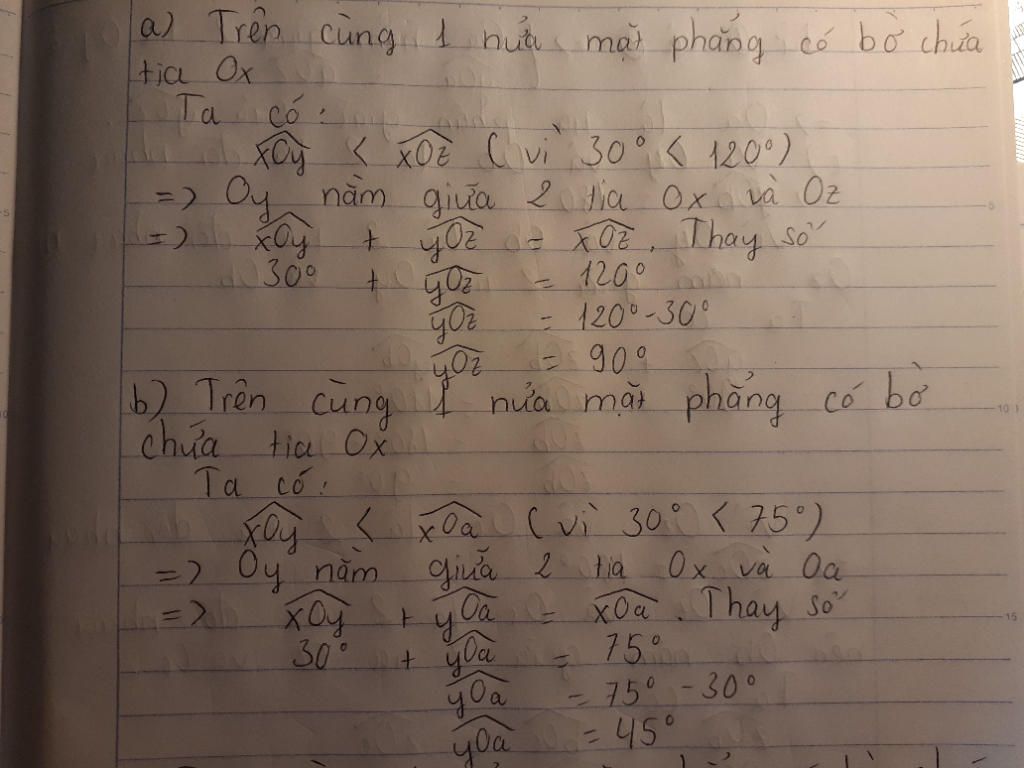 a) Trên cùng 1 nửa mặt phẳng có bờ chứa
tia Ox
Ta có:
xOy < xOz (vì 30° < 120°)
=> Oy nằm giữa 2 tia Ox và Oz
=> xOy + yOz = xOz. Thay số
30° + yOz = 120°
yOz = 120° - 30°
yOz = 90°
b) Trên cùng 1 nửa mặt phẳng có bờ
chứa tia Ox
Ta có:
xOy < xOa (vì 30° < 75°)
=> Oy nằm giữa 2 tia Ox và Oa
=> xOy + yOa = xOa. Thay số
30° + yOa = 75°
yOa = 75° - 30°
yOa = 45°